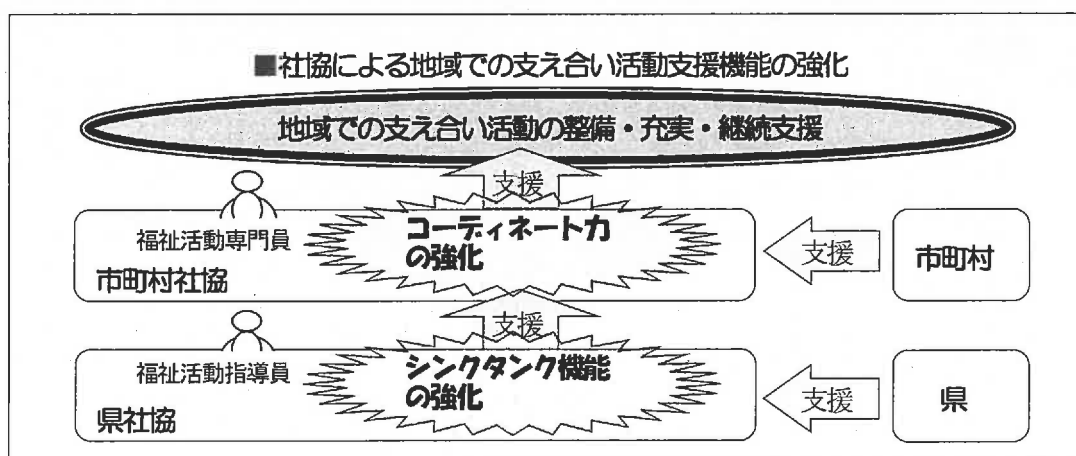 ■社協による地域での支え合い活動支援機能の強化
地域での支え合い活動の整備・充実・継続支援
支援
福祉活動専門員
市町村社協
コーディネート力
の強化
支援
市町村
支援
福祉活動指導員
県社協
シンクタンク機能
の強化
支援
県